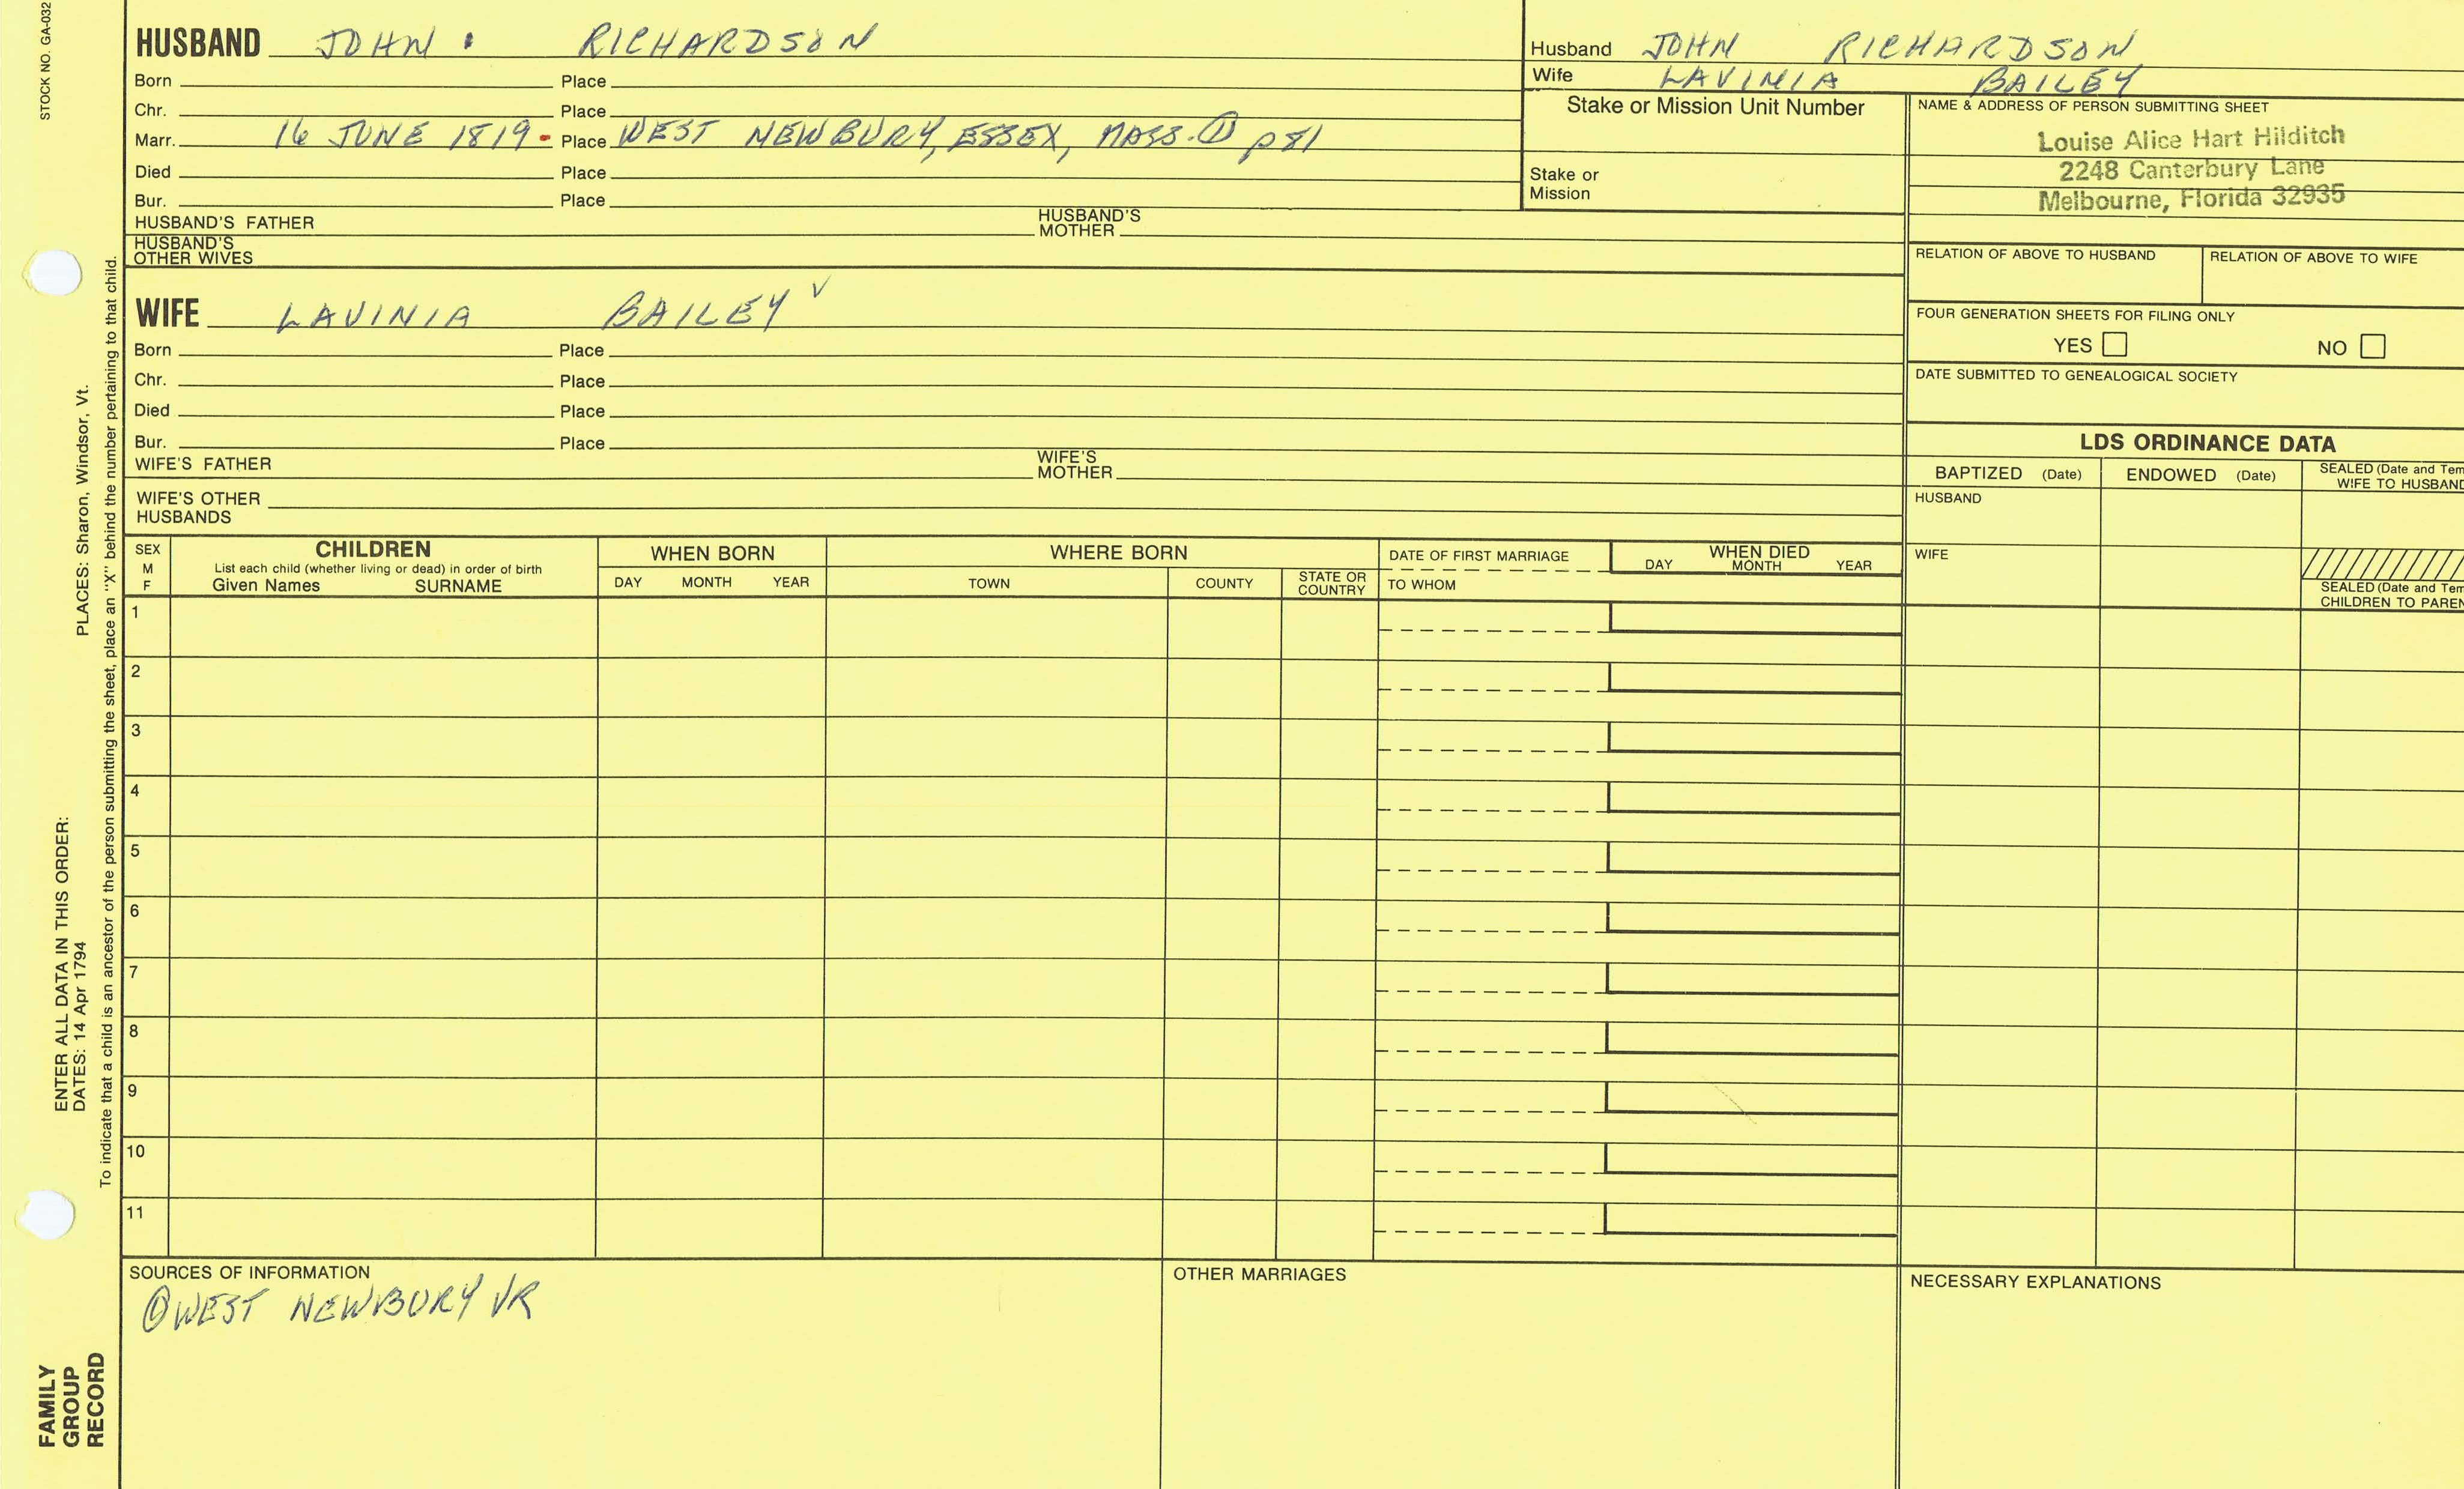 STOCK NO. GA-032
HUSBAND JOHN RICHARDSON
Born Place
Chr. Place
Marr. 16 JUNE 1819 - Place WEST NEWBURY, ESSEX, MASS. ① p81
Died Place
Bur. Place
HUSBAND'S FATHER HUSBAND'S MOTHER
HUSBAND'S OTHER WIVES
WIFE LAVINIA BAILEY √
Born Place
Chr. Place
Died Place
Bur. Place
WIFE'S FATHER WIFE'S MOTHER
WIFE'S OTHER HUSBANDS
Husband JOHN RICHARDSON
Wife LAVINIA BAILEY
Stake or Mission Unit Number
Stake or Mission
NAME & ADDRESS OF PERSON SUBMITTING SHEET
Louise Alice Hart Hilditch
2248 Canterbury Lane
Melbourne, Florida 32935
RELATION OF ABOVE TO HUSBAND RELATION OF ABOVE TO WIFE
FOUR GENERATION SHEETS FOR FILING ONLY
YES NO
DATE SUBMITTED TO GENEALOGICAL SOCIETY
LDS ORDINANCE DATA
BAPTIZED (Date) ENDOWED (Date) SEALED (Date and Tem
WIFE TO HUSBAND
HUSBAND
WIFE
SEALED (Date and Tem
CHILDREN TO PAREN
SEX M F
CHILDREN
List each child (whether living or dead) in order of birth
Given Names SURNAME
WHEN BORN
DAY MONTH YEAR
WHERE BORN
TOWN COUNTY STATE OR COUNTRY
DATE OF FIRST MARRIAGE
TO WHOM
WHEN DIED
DAY MONTH YEAR
1
2
3
4
5
6
7
8
9
10
11
SOURCES OF INFORMATION
① WEST NEWBURY VR
OTHER MARRIAGES
NECESSARY EXPLANATIONS
ENTER ALL DATA IN THIS ORDER:
DATES: 14 Apr 1794 PLACES: Sharon, Windsor, Vt.
To indicate that a child is an ancestor of the person submitting the sheet, place an "X" behind the number pertaining to that child.
FAMILY
GROUP
RECORD